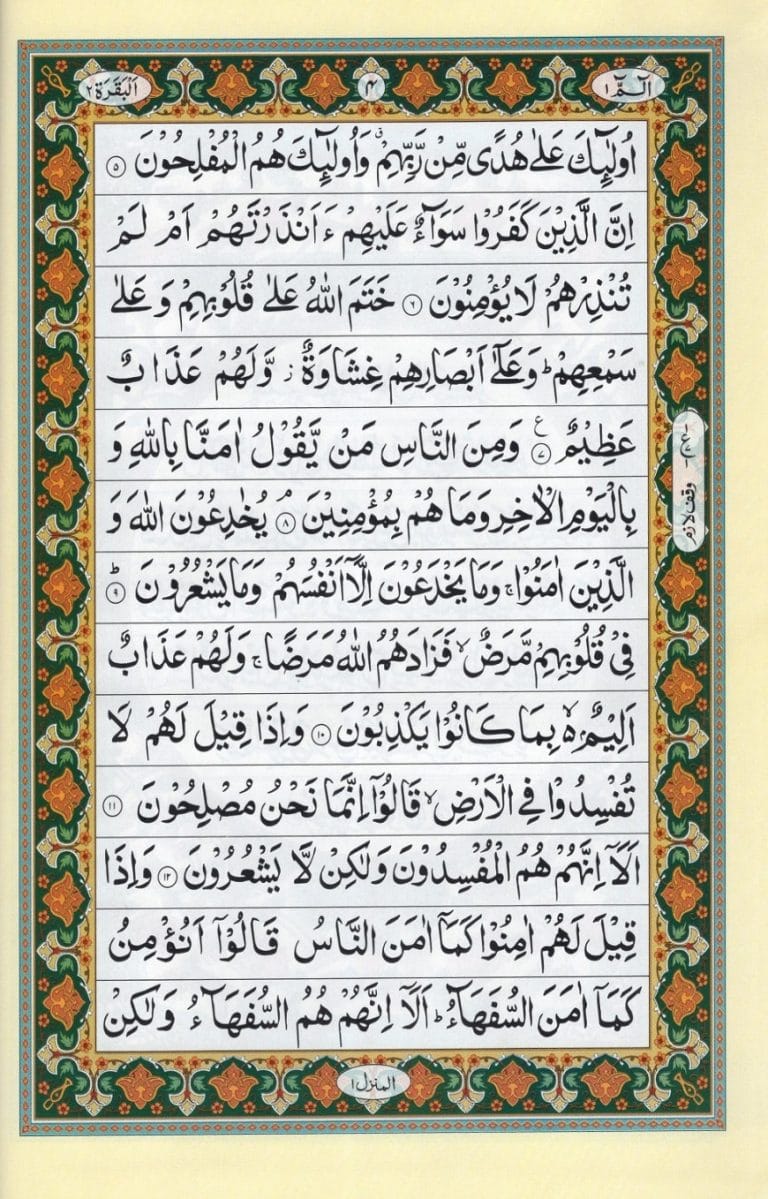 الٓمّٓ ۱
۴
اَلْبَقَرَة ۲
اُولٰٓئِكَ عَلٰى هُدًى مِّنْ رَّبِّهِمْ ۙ وَاُولٰٓئِكَ هُمُ الْمُفْلِحُوْنَ ۵
اِنَّ الَّذِيْنَ كَفَرُوْا سَوَآءٌ عَلَيْهِمْ ءَاَنْذَرْتَهُمْ اَمْ لَمْ
تُنْذِرْهُمْ لَا يُؤْمِنُوْنَ ۶ خَتَمَ اللّٰهُ عَلٰى قُلُوْبِهِمْ وَعَلٰى
سَمْعِهِمْ ؕ وَعَلٰٓى اَبْصَارِهِمْ غِشَاوَةٌ ز وَّلَهُمْ عَذَابٌ
عَظِيْمٌ ۷ ع وَمِنَ النَّاسِ مَنْ يَّقُوْلُ اٰمَنَّا بِاللّٰهِ وَ
بِالْيَوْمِ الْاٰخِرِ وَمَا هُمْ بِمُؤْمِنِيْنَ ۘ ۸ يُخٰدِعُوْنَ اللّٰهَ وَ
الَّذِيْنَ اٰمَنُوْا ۚ وَمَا يَخْدَعُوْنَ اِلَّاۤ اَنْفُسَهُمْ وَمَا يَشْعُرُوْنَ ؕ ۹
فِيْ قُلُوْبِهِمْ مَّرَضٌ ۙ فَزَادَهُمُ اللّٰهُ مَرَضًا ۚ وَلَهُمْ عَذَابٌ
اَلِيْمٌۢ ۙ بِمَا كَانُوْا يَكْذِبُوْنَ ۱۰ وَاِذَا قِيْلَ لَهُمْ لَا
تُفْسِدُوْا فِي الْاَرْضِ ۙ قَالُوْٓا اِنَّمَا نَحْنُ مُصْلِحُوْنَ ۱۱
اَلَآ اِنَّهُمْ هُمُ الْمُفْسِدُوْنَ وَلٰكِنْ لَّا يَشْعُرُوْنَ ۱۲ وَاِذَا
قِيْلَ لَهُمْ اٰمِنُوْا كَمَآ اٰمَنَ النَّاسُ قَالُوْٓا اَنُؤْمِنُ
كَمَآ اٰمَنَ السُّفَهَآءُ ؕ اَلَآ اِنَّهُمْ هُمُ السُّفَهَآءُ وَلٰكِنْ
وقف لازم
المنزل ۱